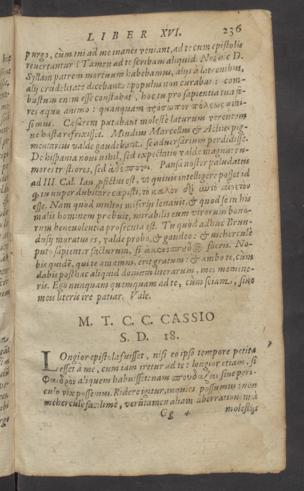 LIBER XVI. 236
purgo, cùm mi ad me inanes veniant, ad te cum epistolis
reuertantur? Tamen ad te scribam aliquid. Nos hîc P.
Syllam patrem mortuum habebamus, alij à latronibus,
alij cruditate dicebant: populus non curabat: com-
bustum enim esse constabat, hoc tu pro sapientia tua fe-
res æquo animo: quanquam πρόσωπον πόλεως
simus. Cæsarem putabant molestè laturum verentem
ne hasta refrixisset. Mindius Marcellus & Attius pig-
mentarius valde gaudebant, se aduersarium perdidisse.
De hispania noui nihil, sed expectatio valde magna: ru-
mores tristiores, sed Pansa noster paludatus
ad III. Cal. Ian. profectus est, vt quiuis intellegere posset id
quod tu nuper dubitare cœpisti, τὸ καλὸν δι' αὑτὸ αἱρετὸν
esse. Nam quod multos miserijs leuauit, & quod se in his
malis hominem præbuit, mirabilis eum virorum bono-
rum beneuolentia prosecuta est. Tu quod adhuc Brun-
dusij moratus es, valde probo, & gaudeo: & mehercule
puto sapienter facturum, si fueris. No-
bis quidem, qui te amamus, erit gratum: & amabo te, cum
dabis posthac aliquid domum literarum, mei memine-
ris. Ego nunquam quemquam ad te, cum sciam, sine
meis literis ire patiar. Vale.
M. T. C. C. CASSIO
S. D. 18.
LOngior epistola fuisset, nisi eo ipso tempore petita
esset à me, cum iam iretur ad te: longior etiam, si
aliquem habuisset: nam σπουδάζειν sine peri-
culo vix possumus. Ridere igitur, inquies, possumus? non
mehercule facillimè, verùmtamen aliam aberrationem à
Gg 4 molestijs